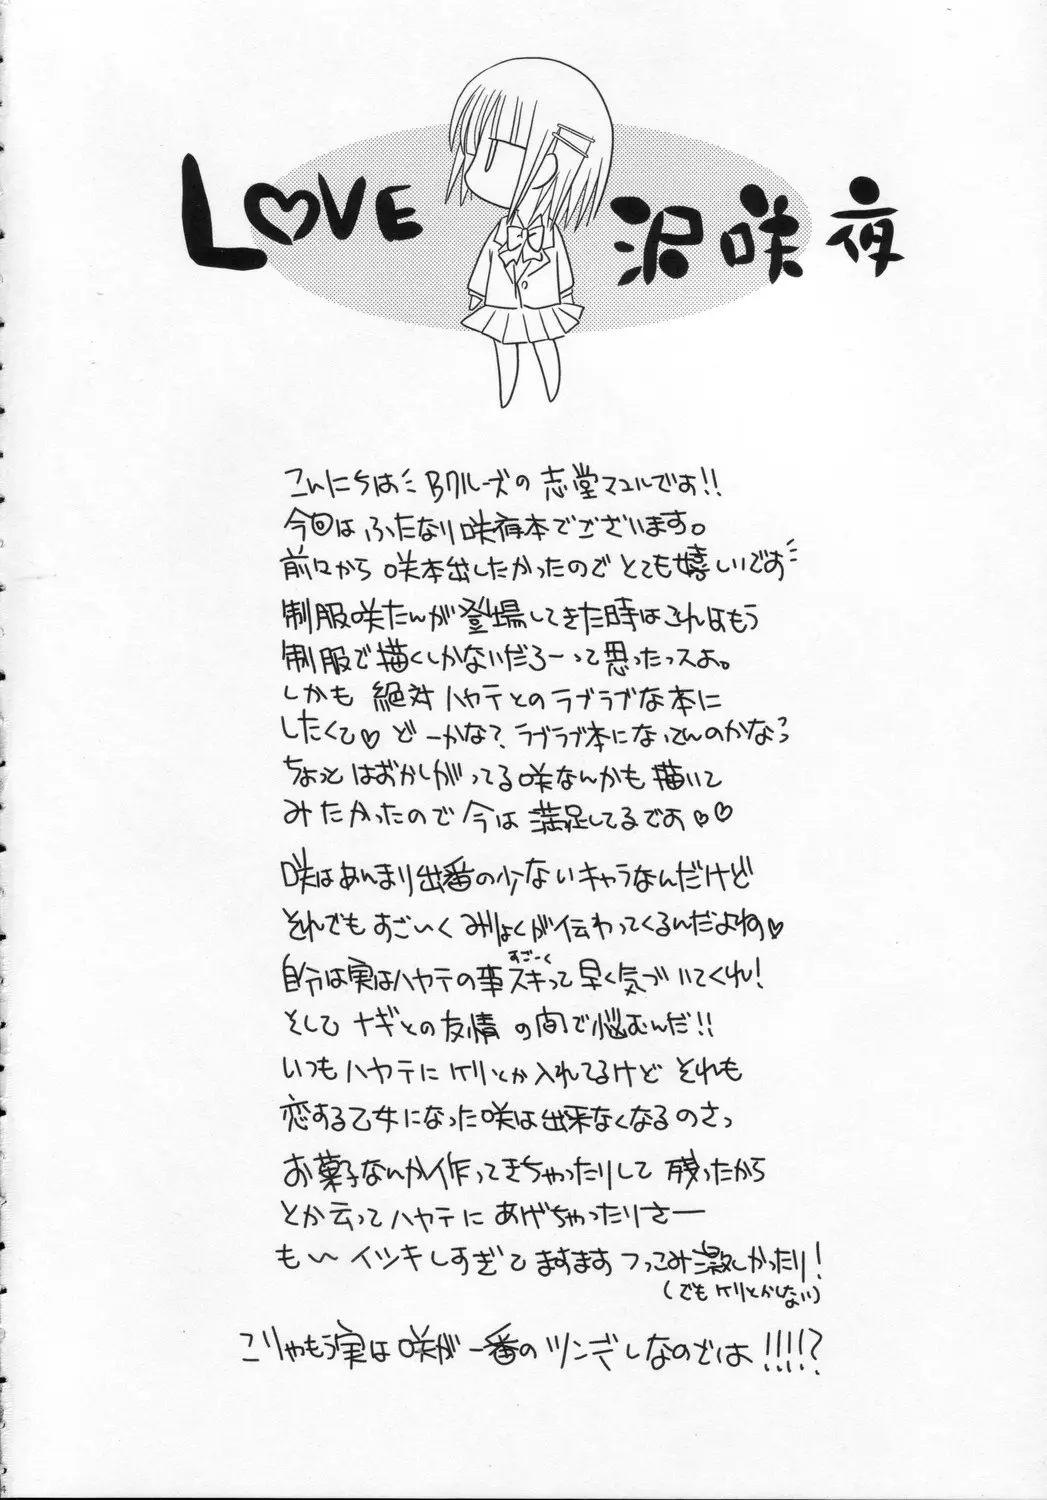 LOVE 沢咲夜
こんにちは Bクルーズの 志堂マユルでっす!!
今回は ふたなり咲夜本でございます。
前々から 咲本出したかったので とても嬉しいでっす
制服咲たんが登場してきた時はこれはもう
制服で描くしかないだろーって思ったっスよ。
しかも 絶対 ハヤテとの ラブラブな本に
したくて♡ どーかな? ラブラブ本になってんのかなっ
ちょっと はずかしがってる 咲なんかも 描いて
みたかったので 今は 満足してるでっす♡♡
咲はあんまり出番の少ないキャラなんだけど
それでも すごいく みりょくが伝わってくるんだよね♡
すごーく
自分は実はハヤテの事スキって 早く気づいてくれ!
そして ナギとの 友情 の間で悩むんだ!!
いつもハヤテに ケリとか入れてるけど それも
恋する乙女になった咲は出来なくなるのさっ
お菓子なんか作ってきちゃったりして 残ったから
とか云ってハヤテに あげちゃったりさー
も〜 イツキしすぎて ますます つっこみ激しかったり!
(でも ケリとかしない)
こりゃもう実は 咲が 一番の ツンデレなのでは !!!!?